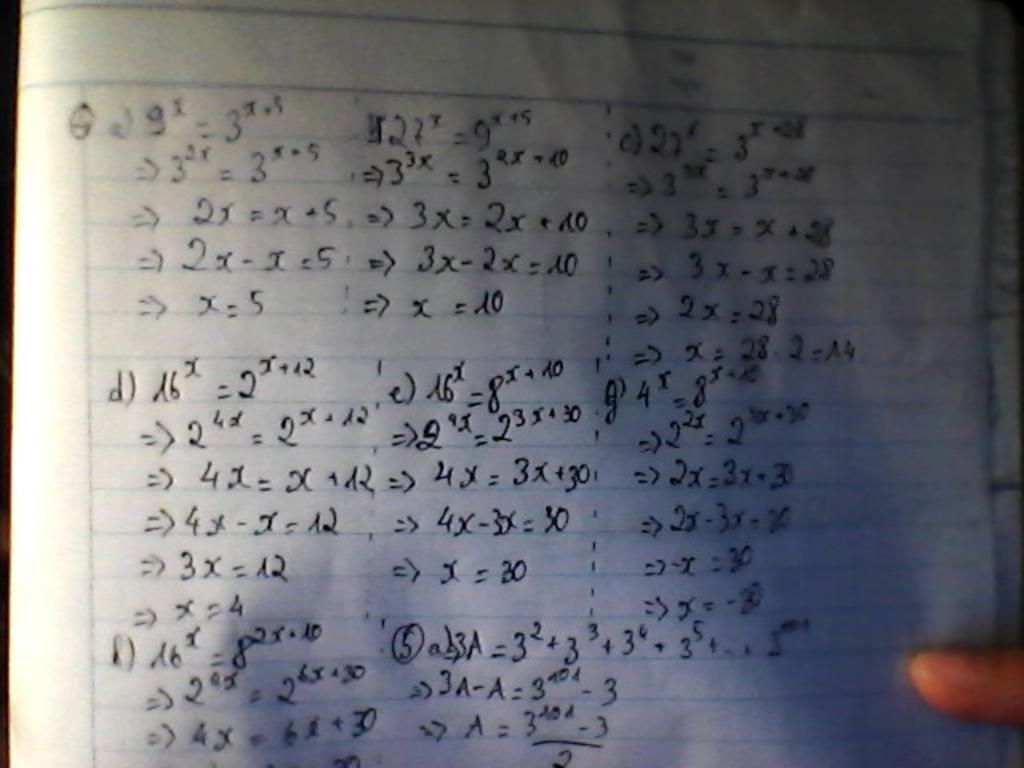 a) 9^x = 3^{x+5}
=> 3^{2x} = 3^{x+5}
=> 2x = x+5
=> 2x - x = 5
=> x = 5
27^x = 9^{x+5}
=> 3^{3x} = 3^{2x+10}
=> 3x = 2x + 10
=> 3x - 2x = 10
=> x = 10
c) 27^x = 3^{x+28}
=> 3^{3x} = 3^{x+28}
=> 3x = x + 28
=> 3x - x = 28
=> 2x = 28
=> x = 28 : 2 = 14
d) 16^x = 2^{x+12}
=> 2^{4x} = 2^{x+12}
=> 4x = x + 12
=> 4x - x = 12
=> 3x = 12
=> x = 4
e) 16^x = 8^{x+10}
=> 2^{4x} = 2^{3x+30}
=> 4x = 3x+30
=> 4x-3x = 30
=> x = 30
g) 4^x = 8^{x+10}
=> 2^{2x} = 2^{3x+30}
=> 2x = 3x+30
=> 2x-3x = 30
=> -x = 30
=> x = -30
h) 16^x = 8^{2x+10}
=> 2^{4x} = 2^{6x+30}
=> 4x = 6x + 30
⑤ a) 3A = 3^2 + 3^3 + 3^4 + 3^5 + ... 3^{101}
=> 3A - A = 3^{101} - 3
=> A = \frac{3^{101} - 3}{2}